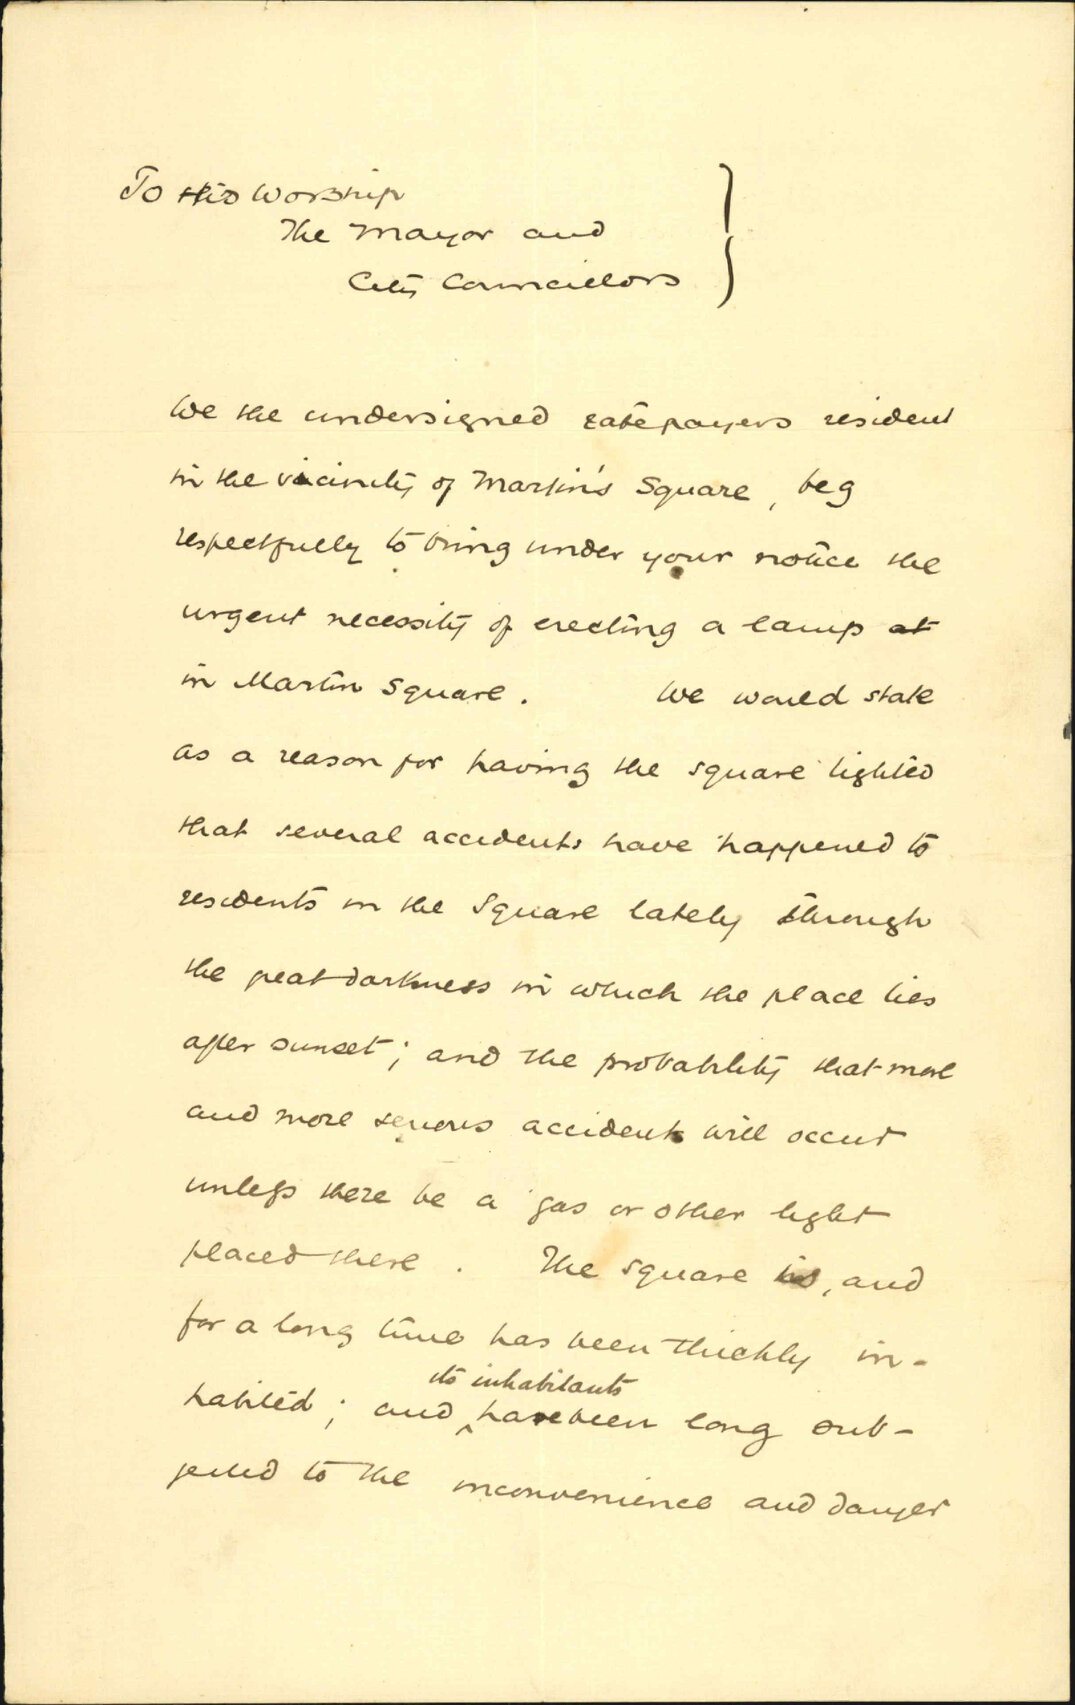 To His Worship
The Mayor and
City Councillors
We the undersigned ratepayers resident
in the vicinity of Martin's Square, beg
respectfully to bring under your notice the
urgent necessity of erecting a lamp at
in Martin Square. We would state
as a reason for having the square lighted
that several accidents have happened to
residents in the Square lately through
the great darkness in which the place lies
after sunset; and the probability that more
and more serious accidents will occur
unless there be a gas or other light
placed there. The square is, and
for a long time has been thickly in-
its inhabitants
habited; and have been long sub-
jected to the inconvenience and danger